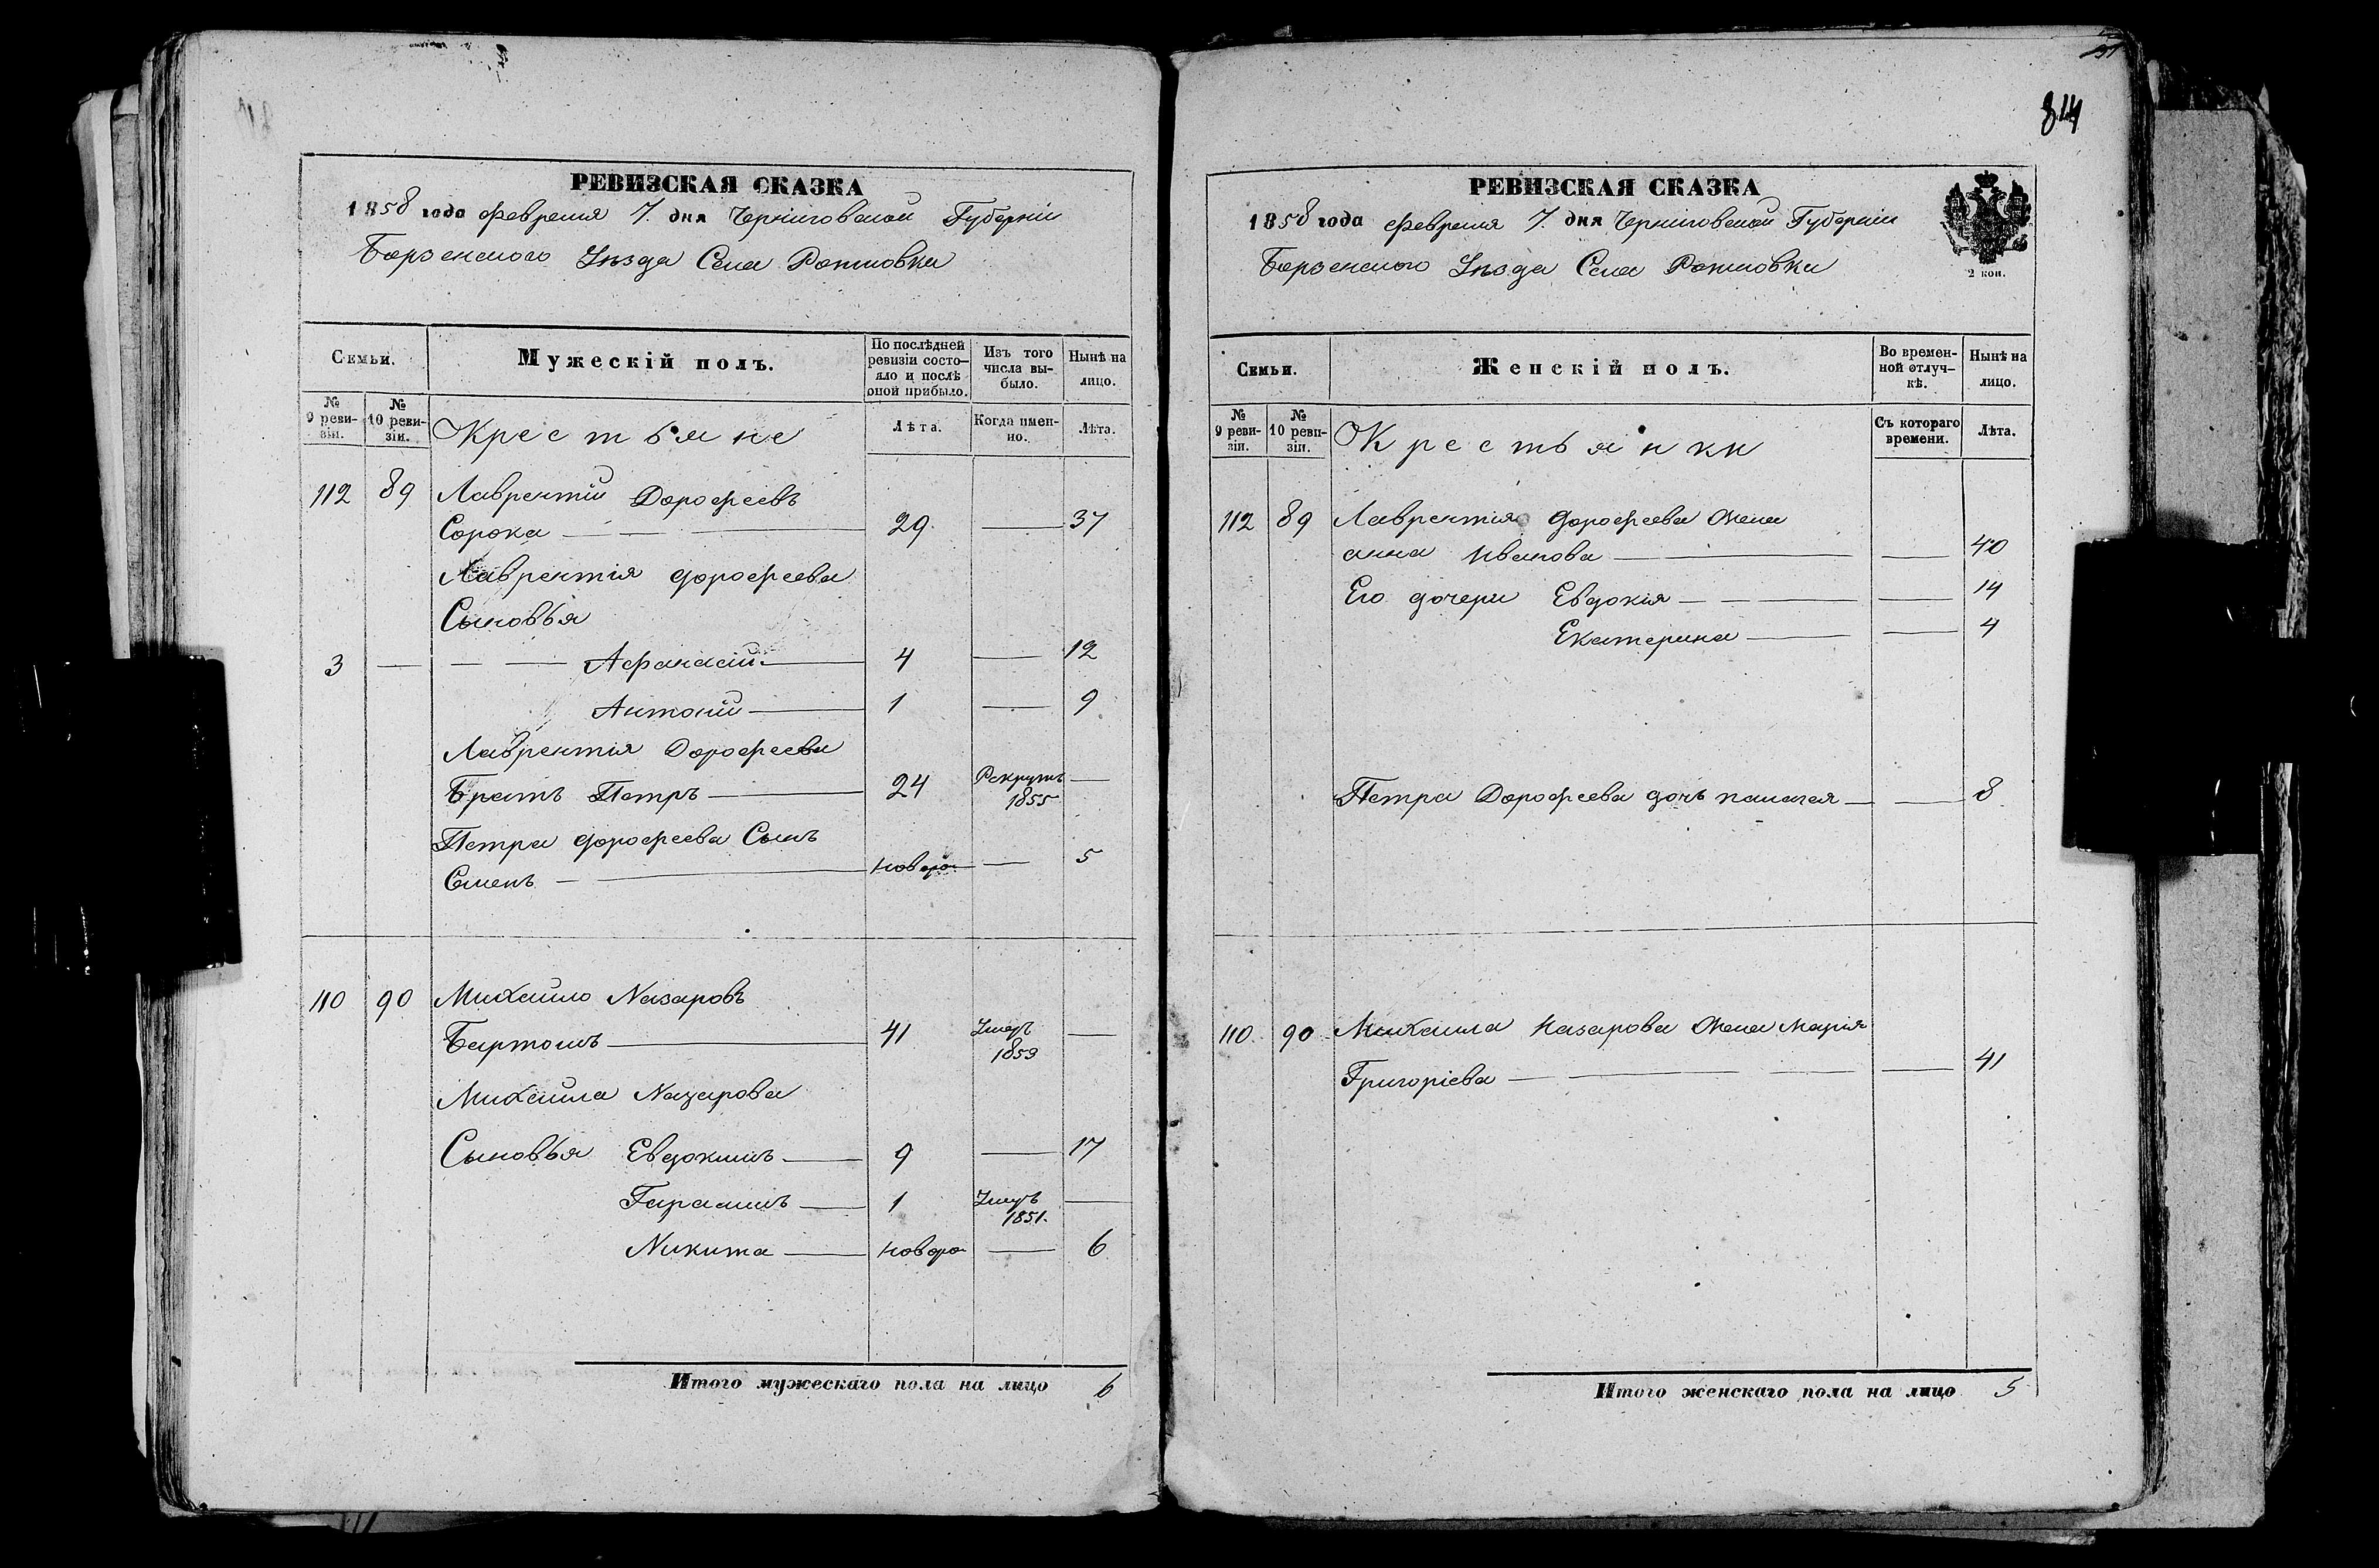 РЕВИЗСКАЯ СКАЗКА
1858 года февраля 7. дня Черниговской Губерніи
Борзенского Уѣзда Села
Семьи.
Мужескій полъ.
По послѣдней ревизіи состо-
яло и послѣ
оной прибыло.
Изъ того
числа вы-
было.
Нынѣ на
лицо.
№
9 реви-
зіи.
№
10 реви-
зіи.
Крестьяне
Лѣта.
Когда имен-
но.
Лѣта.
112 89 Лаврентій Дорофеевъ
Сорока 29 37
Лаврентія Дорофеева
Сыновья
3 Афанасій 4 12
Антоній 1 9
Лаврентія Дорофеева
Братъ Петръ 24 Рекрутъ 1855
Петра Дорофеева Сынъ
Семенъ новоро 5
110 90 Михайло Назаровъ
41 Умеръ
Михайла Назарова
Сыновья Евдокимъ 9 17
1 Умеръ 1851.
Никита новоро 6
Итого мужескаго пола на лицо 6
814
РЕВИЗСКАЯ СКАЗКА
1858 года февраля 7. дня Черниговской Губерніи
Борзенского Уѣзда Села
2 коп.
Семьи.
Женскій полъ.
Во времен-
ной отлуч-
кѣ.
Нынѣ на
лицо.
№
9 реви-
зіи.
№
10 реви-
зіи.
Крестьянки
Съ котораго
времени.
Лѣта.
112 89 Лаврентія Дорофеева Жена
анна Иванова 40
Его дочери Евдокія 14
Екатерина 4
Петра Дорофеева дочь палагея 8
110 90 Михаила Назарова Жена Марія
Григоріева 41
Итого женскаго пола на лицо 5